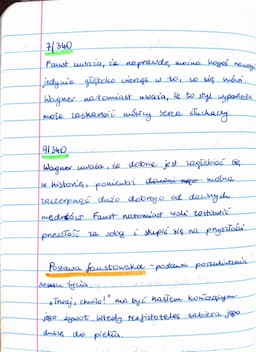 7/340
Faust uważa, że naprawdę można kogoś nauczyć
jedynie głęboko wierząc w to, co się mówi.
Wagner natomiast uważa, że to styl wypowiedzi
może zaskarbić myśli serca słuchaczy.
9/340
Wagner uważa, że dobrze jest zagłębiać się
w historię, ponieważ można
zaczerpnąć dużo dobrego od dawnych
mędrców. Faust natomiast woli zostawić
przeszłość za sobą i skupić się na przyszłości.
Postawa faustowska - postawa poszukiwania
sensu życia.
"Trwaj, chwilo!" ma być hasłem kończącym
jego żywot. Wtedy Mefistofeles zabiera jego
duszę do piekła.